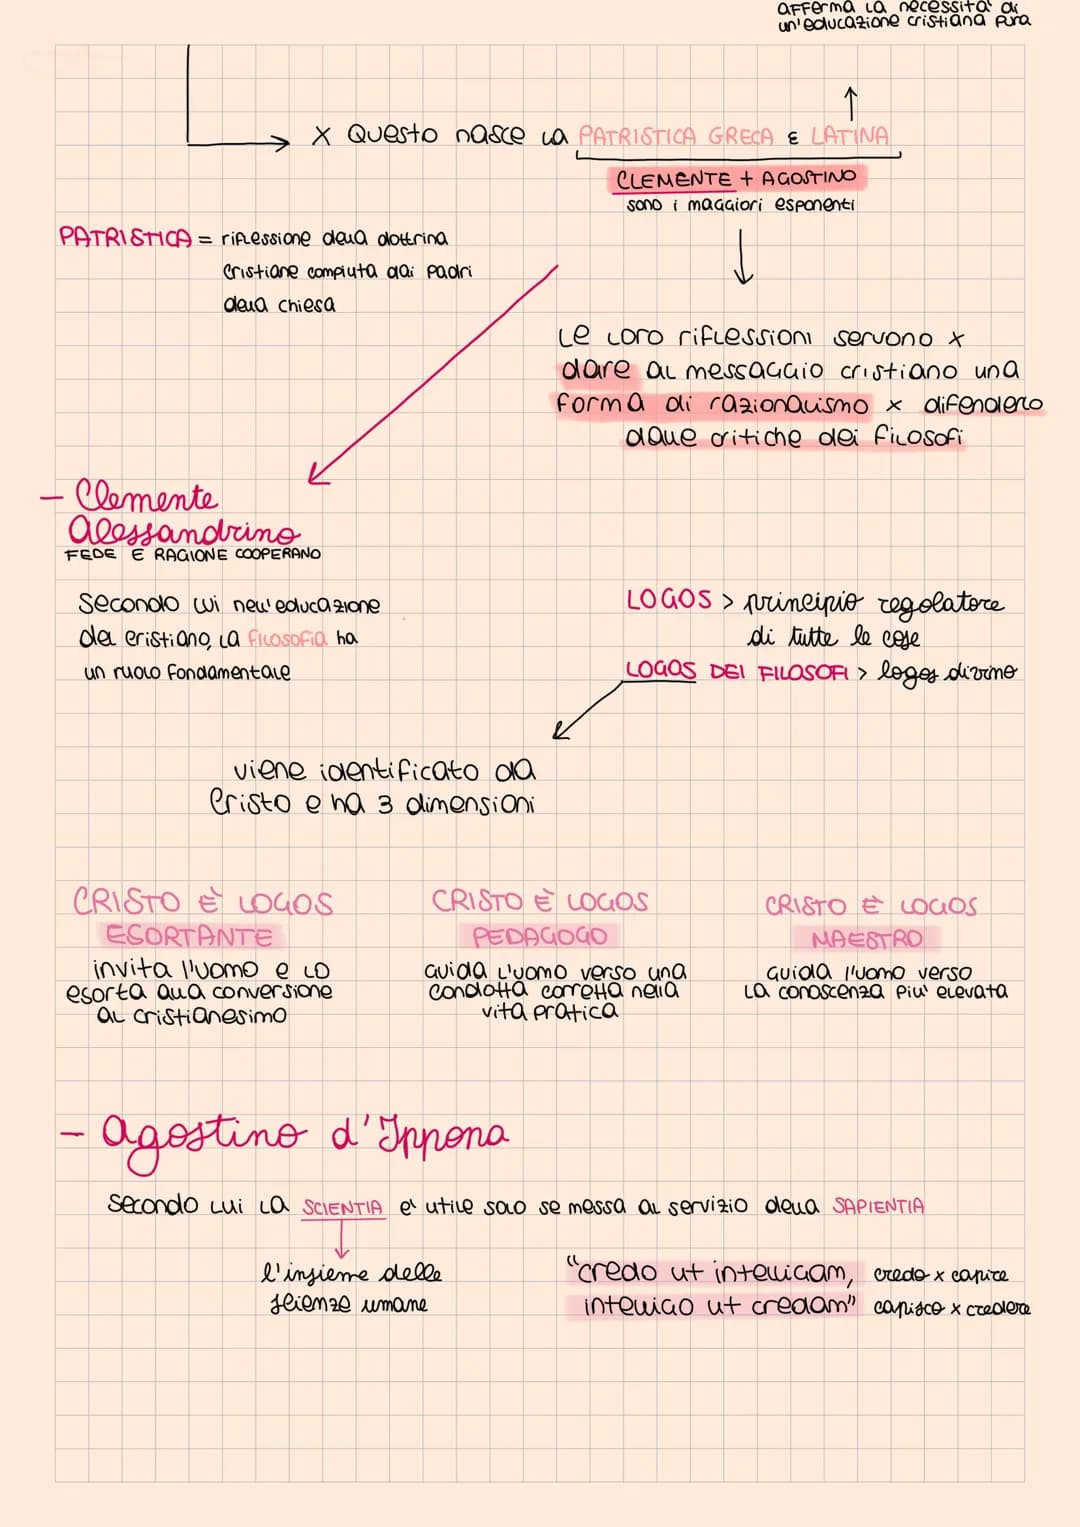 afferma la necessità di
un'educazione cristiana pura
x Questo nasce la PATRISTICA GRECA E LATINA
CLEMENTE + AGOSTINO
sono i maggiori esponenti
PATRISTICA = riflessione della dottrina
cristiane compiuta dai padri
della chiesa
Le loro riflessioni servono x
dare al messaggio cristiano una
forma di razionalismo x difenderlo
dalle critiche dei filosofi
- Clemente
Alessandrino
FEDE E RAGIONE COOPERANO
Secondo lui nell'educazione
del cristiano, la filosofia ha
un ruolo fondamentale
LOGOS > principio regolatore
di tutte le cose
LOGOS DEI FILOSOFI > logos divino
viene identificato da
Cristo e ha 3 dimensioni
CRISTO È LOGOS
ESORTANTE
invita l'uomo e lo
esorta alla conversione
al cristianesimo
CRISTO È LOGOS
PEDAGOGO
guida l'uomo verso una
condotta corretta nella
vita pratica
CRISTO È LOGOS
MAESTRO
guida l'uomo verso
la conoscenza piu' elevata
- Agostino d'Ippona
secondo lui la SCIENTIA e' utile solo se messa al servizio della SAPIENTIA
l'insieme delle
scienze umane
"credo ut intelligam, credo x capire
intelligo ut credam" capisco x credere